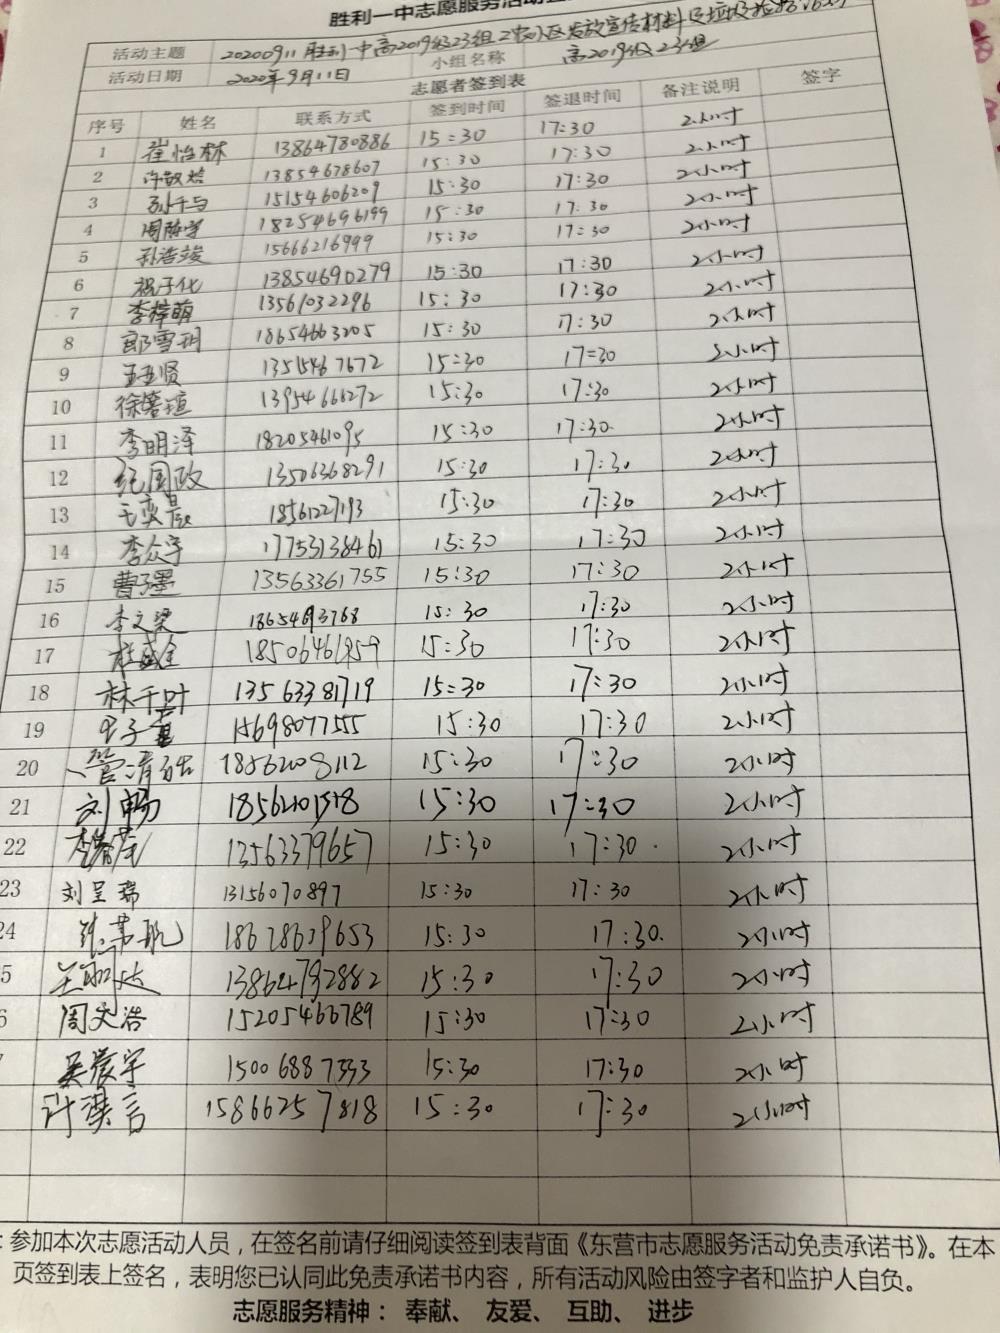 胜利一中志愿服务活动
活动主题 20200911胜利一中高2019级23组 发放宣传材料及垃圾
活动日期 2020年9月11日 小组名称 高2019级23组
志愿者签到表
序号 姓名 联系方式 签到时间 签退时间 备注说明 签字
1 崔怡林 13864780886 15:30 17:30 2小时
2 许敬焓 13854678607 15:30 17:30 2小时
3 孙千与 15154606209 15:30 17:30 2小时
4 18254696199 15:30 17:30 2小时
5 孙浩竣 15666216999 15:30 17:30 2小时
6 祝子化 13854690279 15:30 17:30 2小时
7 李梓萌 13561032296 15:30 17:30 2小时
8 郎雪玥 18654663205 15:30 17:30 2小时
9 孟亚贤 13515467672 15:30 17=30 2小时
10 13954668272 15:30 17:30 2小时
11 李明泽 18205461095 15:30 17:30 2小时
12 纪周政 13506368291 15:30 17:30 2小时
13 王奕晨 18561227193 15:30 17:30 2小时
14 李众宇 17753138461 15:30 17:30 2小时
15 曹子墨 13563361755 15:30 17:30 2小时
16 李文梁 18654693768 15:30 17:30 2小时
17 杜盛金 18506461959 15:30 17:30 2小时
18 林千叶 13563381719 15:30 17:30 2小时
19 15698077555 15:30 17:30 2小时
20 管清 1856208112 15:30 17:30 2小时
21 刘畅 15:30 17:30 2小时
22 13563379657 15:30 17:30 2小时
23 刘呈瑞 13156070897 15:30 17:30 2小时
24 18628639653 15:30 17:30 2小时
5 13864792882 15:30 17:30 2小时
6 周文浩 15205466789 15:30 17:30 2小时
吴晨宇 15006887393 15:30 17:30 2小时
许漠言 15866257818 15:30 17:30 2小时
：参加本次志愿活动人员，在签名前请仔细阅读签到表背面《东营市志愿服务活动免责承诺书》。在本
页签到表上签名，表明您已认同此免责承诺书内容，所有活动风险由签字者和监护人自负。
志愿服务精神： 奉献、 友爱、 互助、 进步